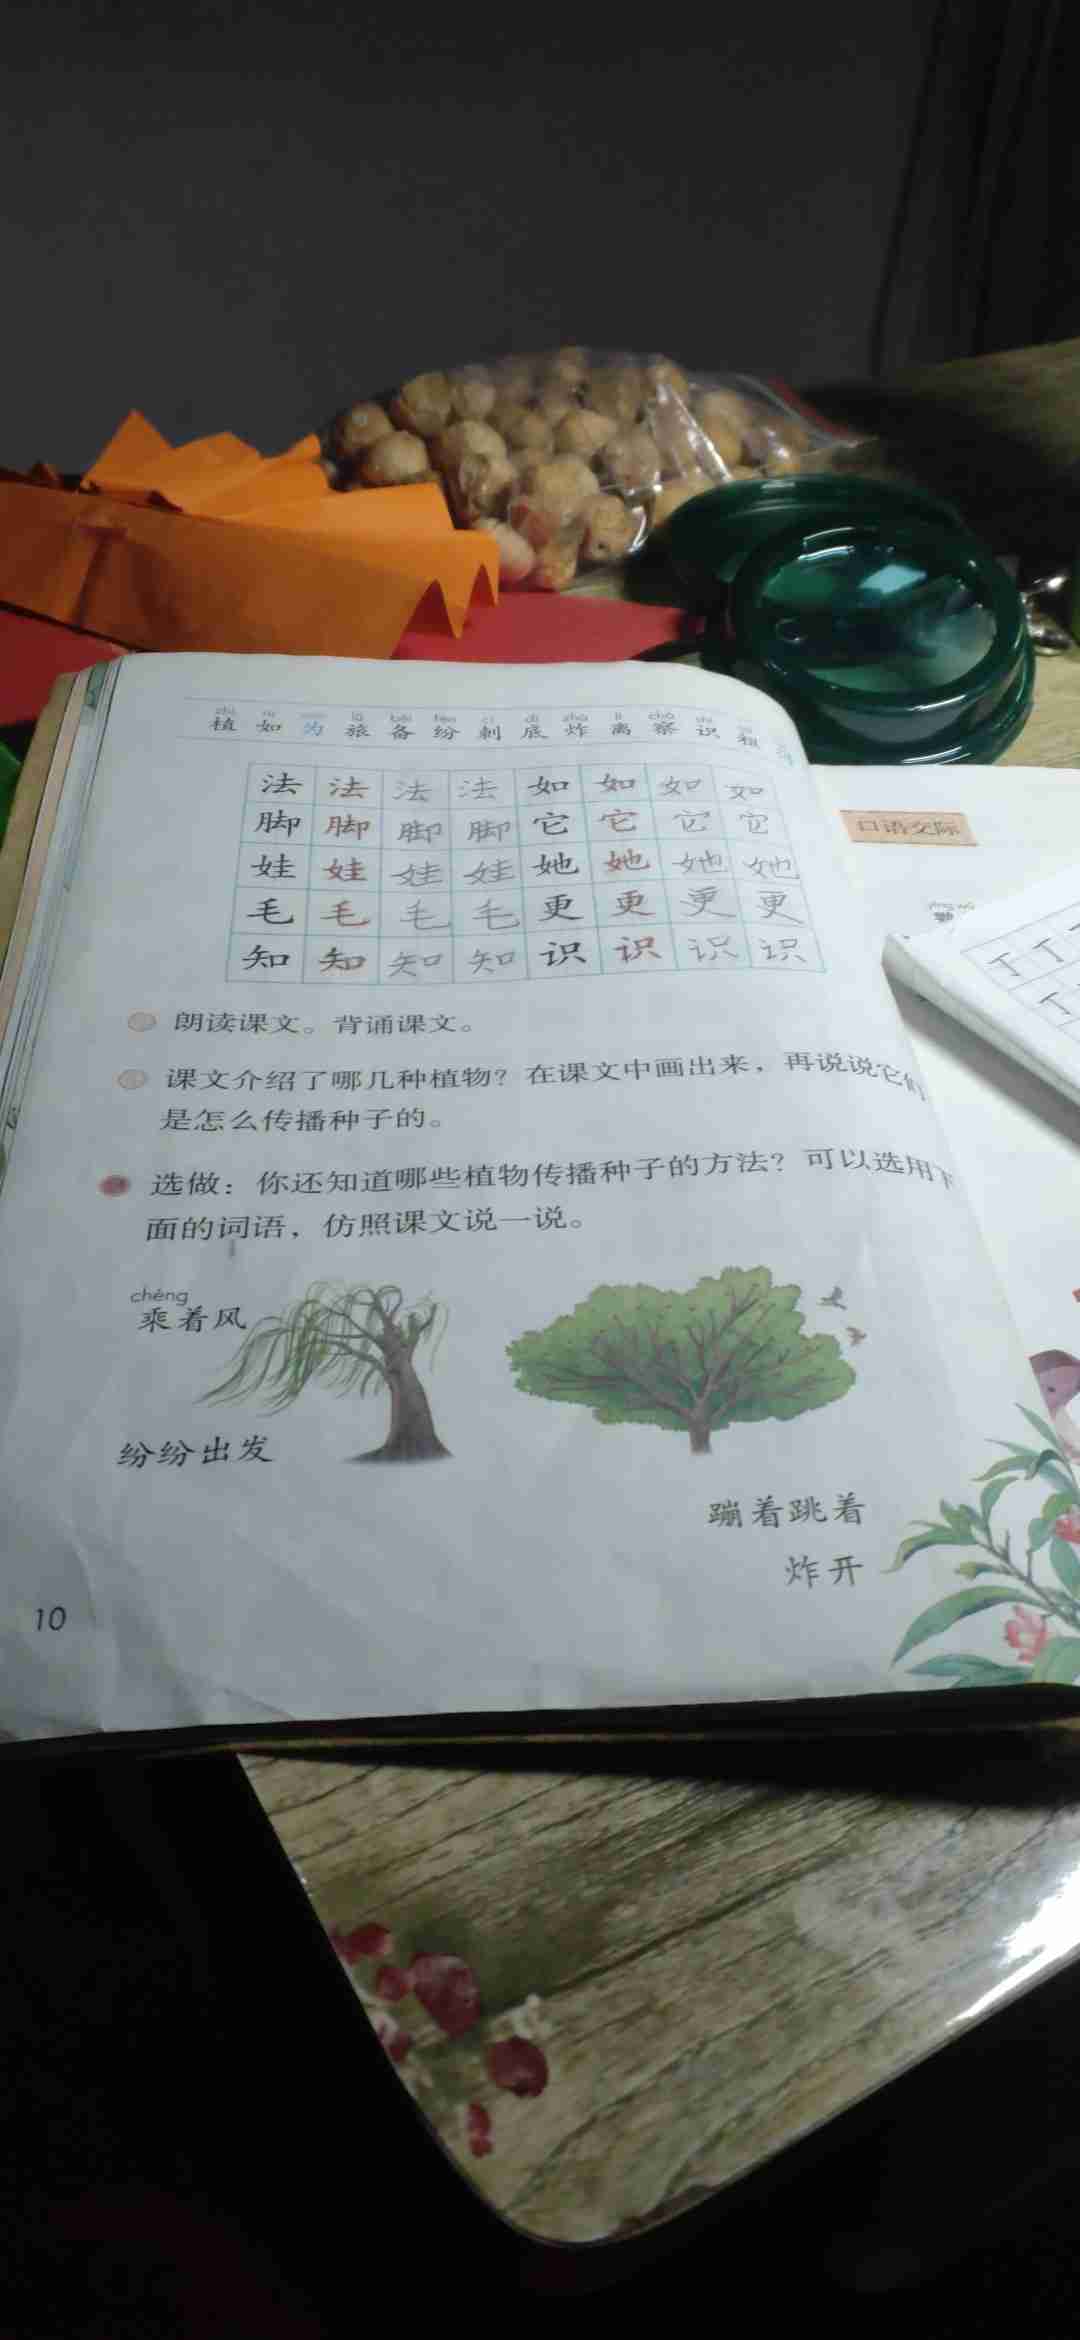 植 如 为 旅 备 纷 刺 底 炸 离 察 识
法 法 法 法 如 如 如 如
脚 脚 脚 脚 它 它 它 它
娃 娃 娃 娃 她 她 她 她
毛 毛 毛 毛 更 更 更 更
知 知 知 知 识 识 识 识
朗读课文。背诵课文。
课文介绍了哪几种植物？在课文中画出来，再说说它们
是怎么传播种子的。
选做：你还知道哪些植物传播种子的方法？可以选用下
面的词语，仿照课文说一说。
chéng
乘着风
纷纷出发
蹦着跳着
炸开
10
口语交际